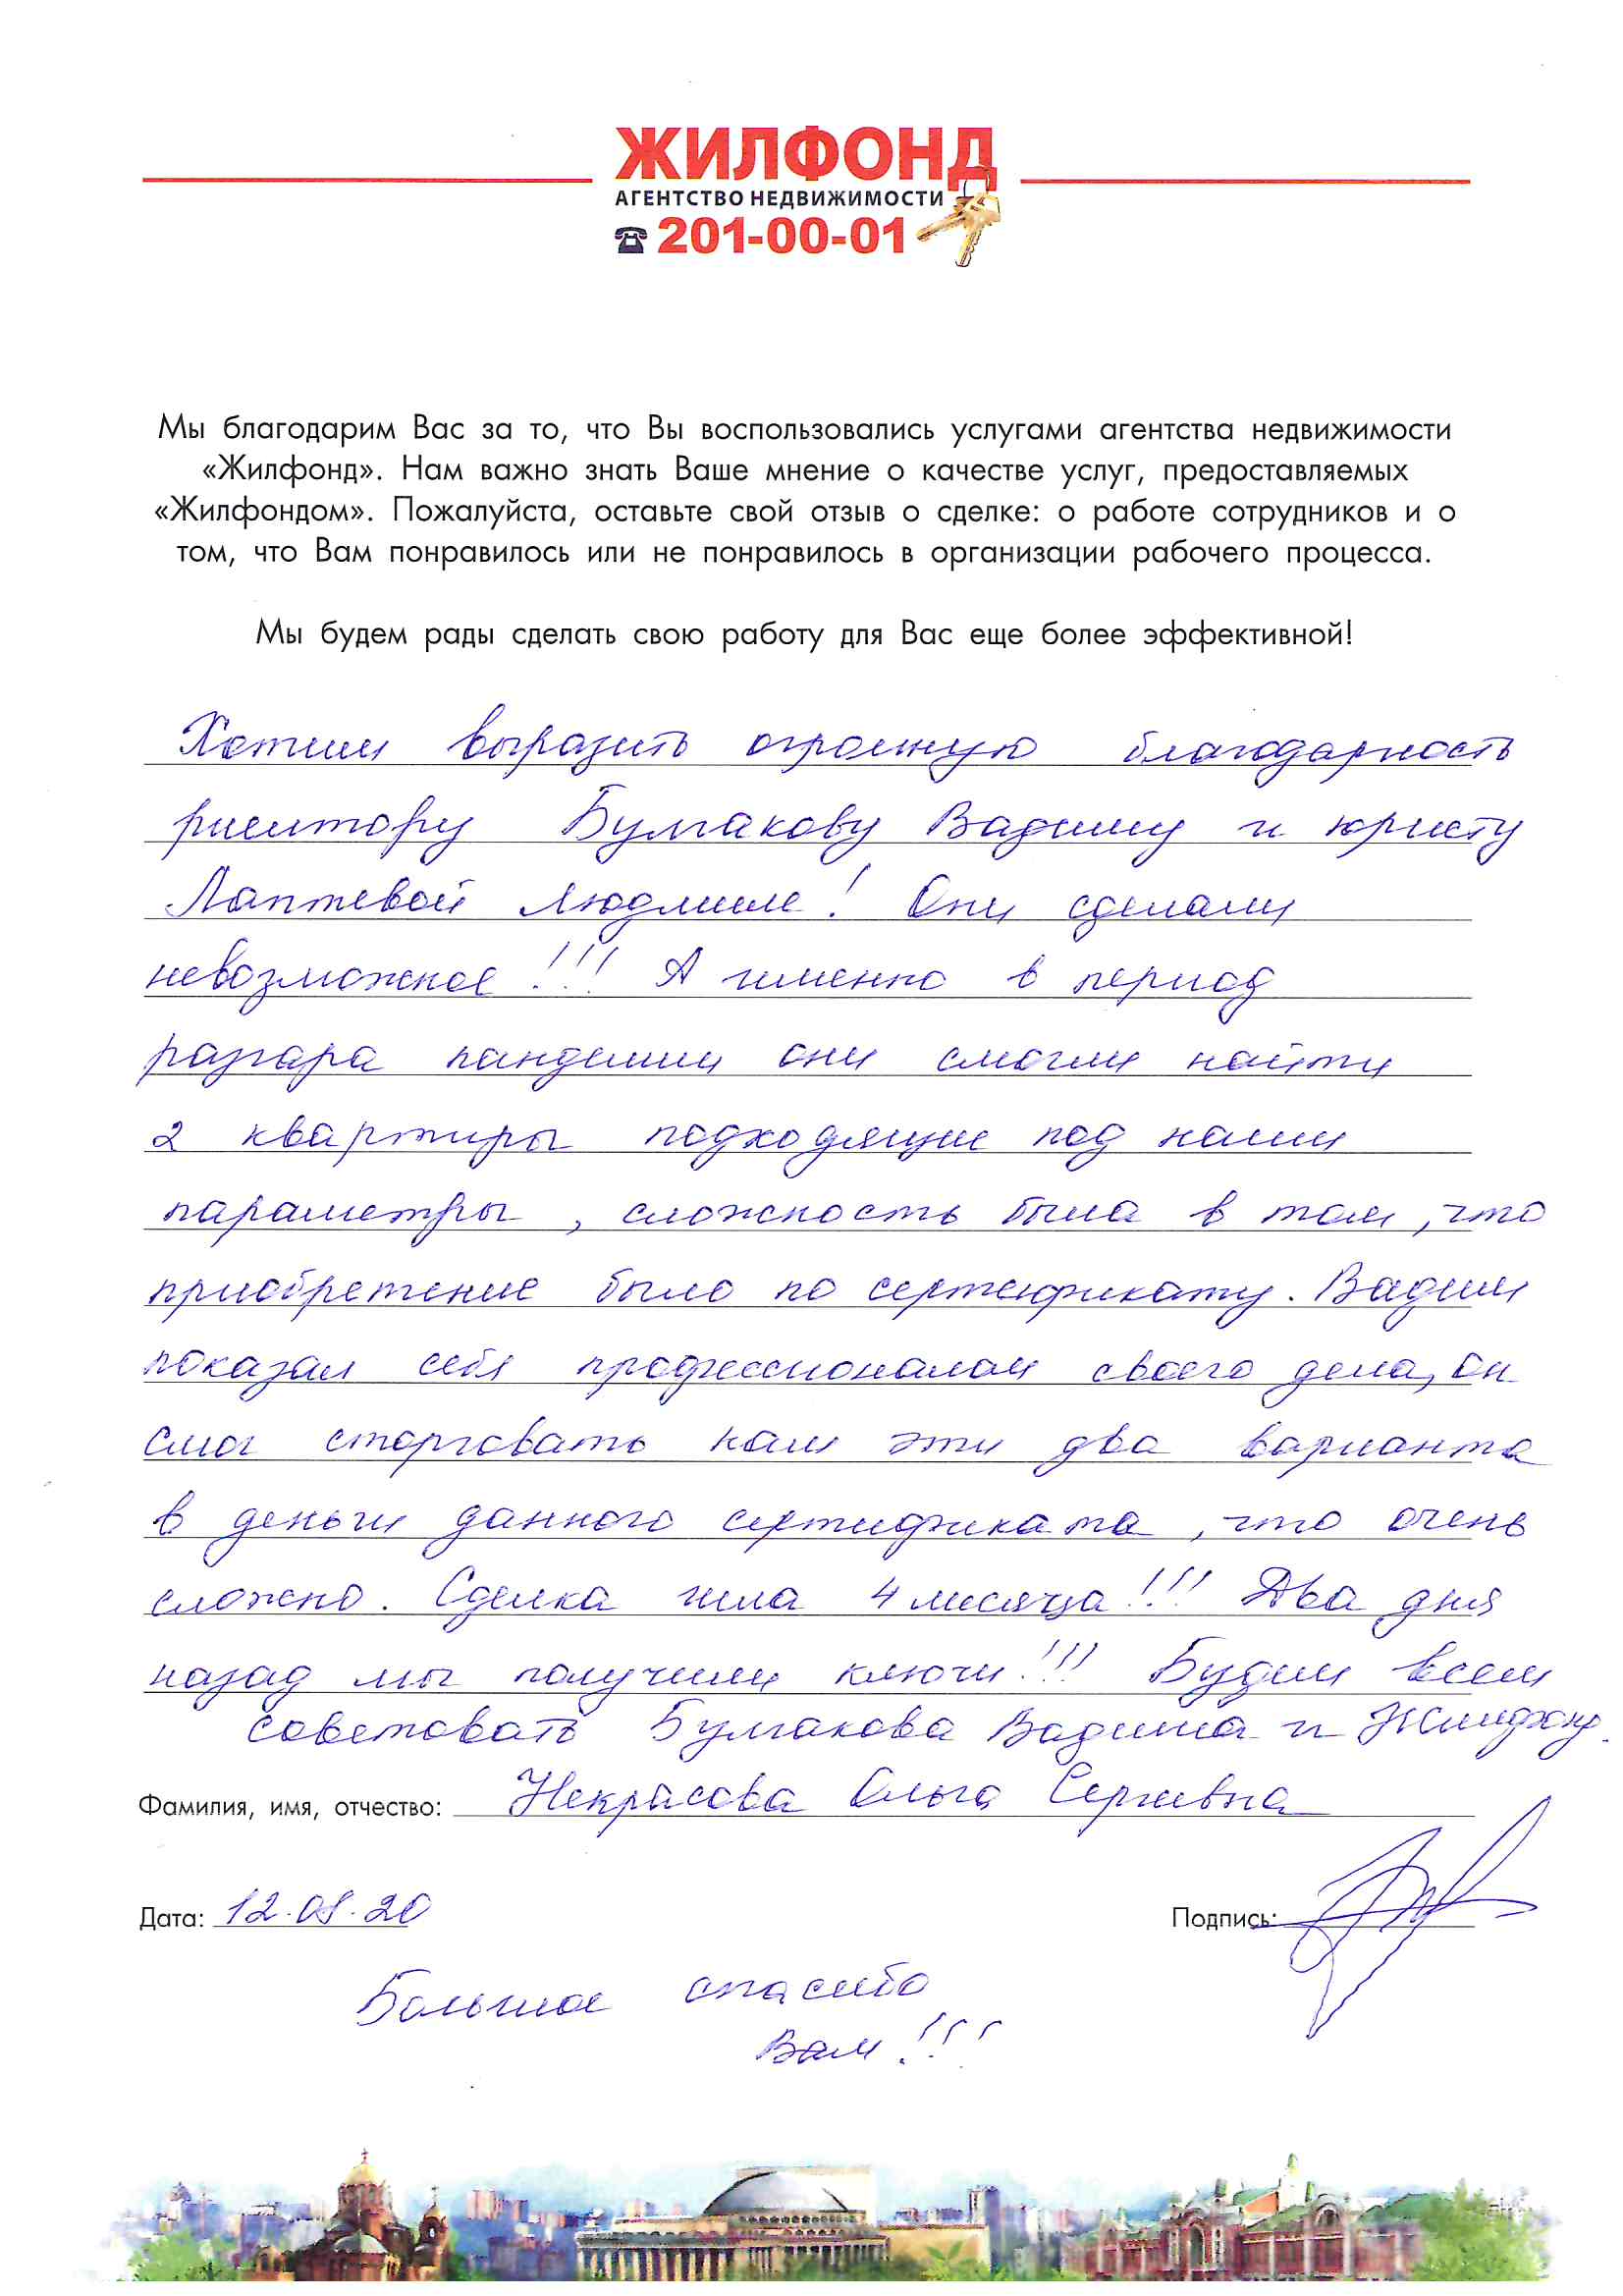 ЖИЛФОНД
АГЕНТСТВО НЕДВИЖИМОСТИ
☎ 201-00-01
Мы благодарим Вас за то, что Вы воспользовались услугами агентства недвижимости
«Жилфонд». Нам важно знать Ваше мнение о качестве услуг, предоставляемых
«Жилфондом». Пожалуйста, оставьте свой отзыв о сделке: о работе сотрудников и о
том, что Вам понравилось или не понравилось в организации рабочего процесса.
Мы будем рады сделать свою работу для Вас еще более эффективной!
Хотим выразить огромную благодарность
риелтору Булгакову Вадиму и юристу
Лаптевой Людмиле! Они сделали
невозможное!!! А именно в период
разгара пандемии они смогли найти
2 квартиры подходящие под наши
параметры, сложность была в том, что
приобретение было по сертификату. Вадим
показал себя профессионалом своего дела, он
смог сторговать нам эти два варианта
в деньги данного сертификата, что очень
сложно. Сделка шла 4 месяца!!! Два дня
назад мы получили ключи!!! Будем всем
советовать Булгакова Вадима и Жилфонд.
Фамилия, имя, отчество: Некрасова Ольга Сергеевна
Дата: 12.08.20 Подпись:
Большое спасибо
Вам!!!